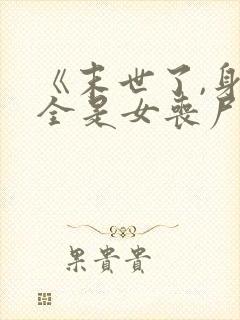 《末世了,身
全是女喪尸
果貴貴